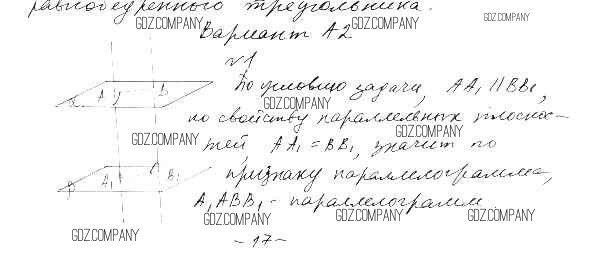 равнобедренного треугольника.
GDZ.COMPANY GDZ.COMPANY GDZ.COMPANY
Вариант А2
№1
α A B
По условию задачи, AA₁ || BB₁,
GDZ.COMPANY
по свойству параллельных плоскос-
GDZ.COMPANY GDZ.COMPANY
тей AA₁ = BB₁, значит по
β A₁ B₁
признаку параллелограмма,
A₁ABB₁ - параллелограмм.
GDZ.COMPANY GDZ.COMPANY GDZ.COMPANY
GDZ.COMPANY
- 17 -